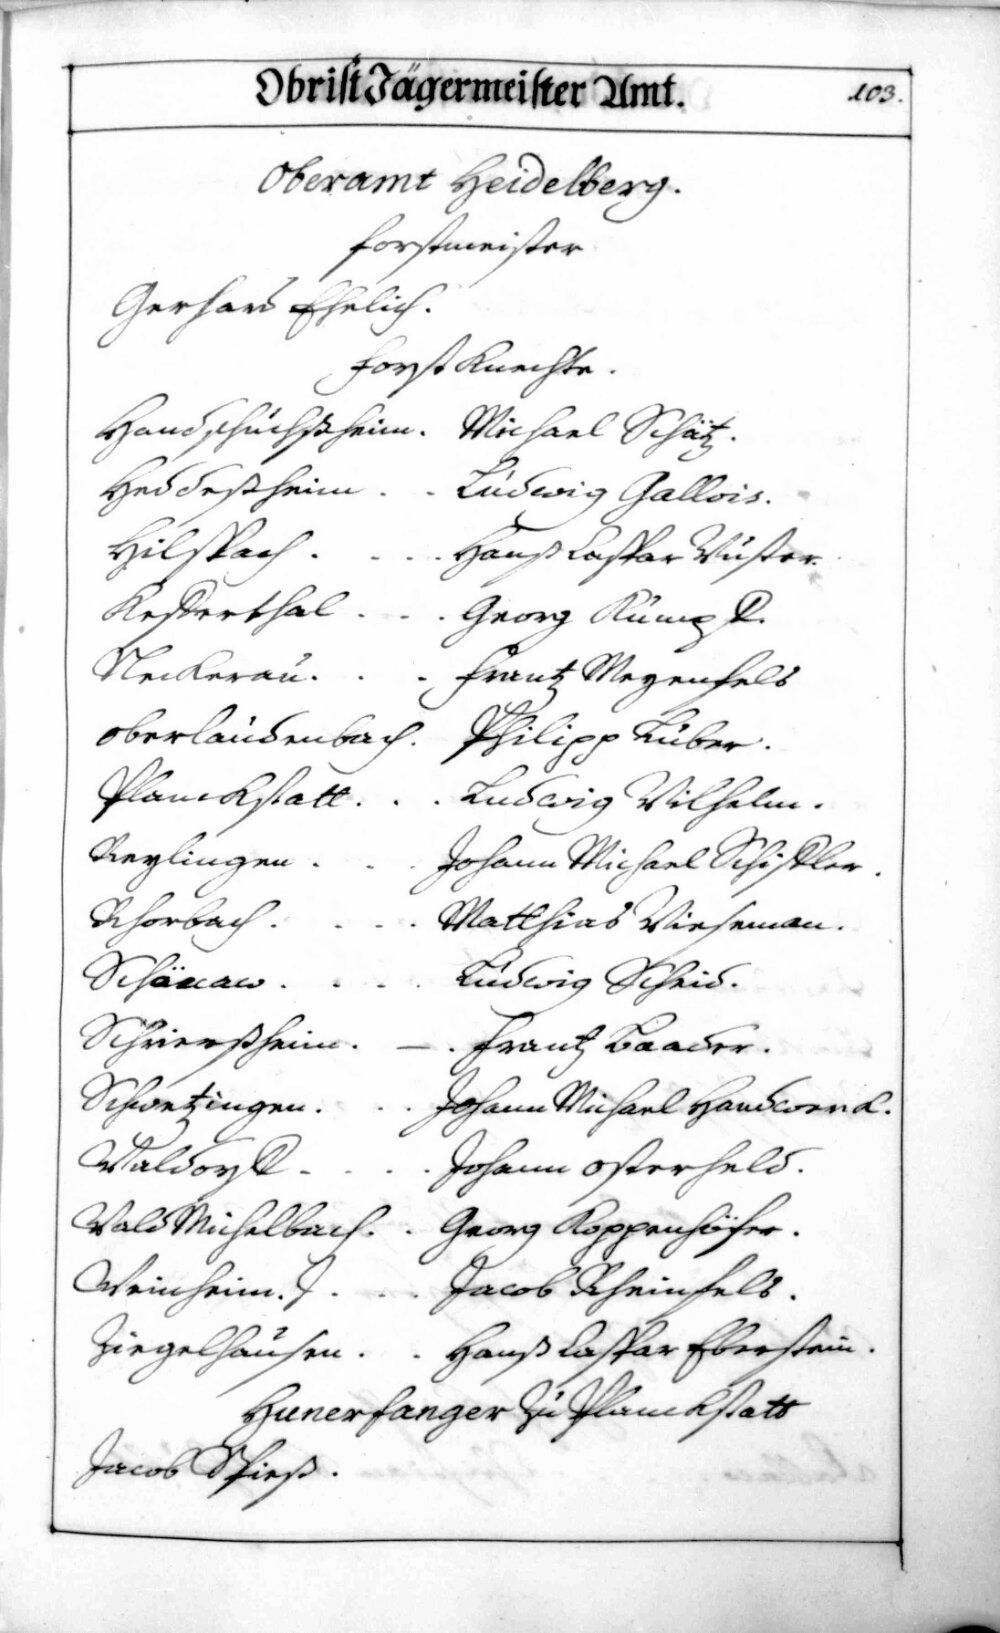 Obrist Jägermeister Amt. 103.
Oberamt Heidelberg.
Forstmeister
Gerhard Ehrlich.
Forst Knechte.
Handschuchßheim. Michael Schätz.
Heddeßheim . . Ludwig Gallois.
Hilspach . . . . Hanß Caspar Wüster.
Kefferthal . . . Georg Kumpf.
Neckerau. . . Frantz Meyenfels
Oberlaudenbach. Philipp Huber.
Planckstatt . . . Ludwig Wilhelm.
Reylingen . . . Johann Michael Schißler.
Rhorbach . . . . Matthias Wieseman.
Schönaw . . . . Ludwig Scheid.
Schrierßheim. — . Frantz Baader.
Schwetzingen. . . Johann Michael Handwerck.
Walldorff . . . . Johann Osterheld.
Wald Michelbach. . Georg Koppenhöfer.
Weinheim. . . . Jacob Rheinfels.
Ziegelhausen . . Hanß Caspar Eberstein.
Hunerfanger Zu Planckstatt
Jacob Spieß.